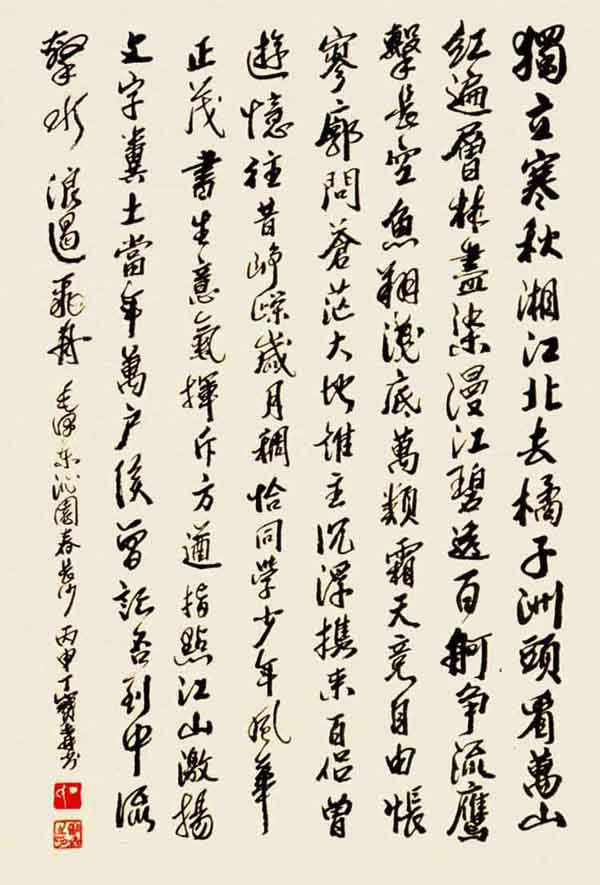 獨立寒秋湘江北去橘子洲頭看萬山
紅遍層林盡染漫江碧透百舸争流鷹
擊長空魚翔淺底萬類霜天竞自由悵
寥廓問蒼茫大地誰主沉浮携来百侣曾
遊憶往昔峥嵘歲月稠恰同學少年風華
正茂書生意氣揮斥方遒指點江山激揚
文字糞土當年萬户侯曾記否到中流
擊水浪遏飛舟 毛泽东沁園春長沙 丙申丁寶书